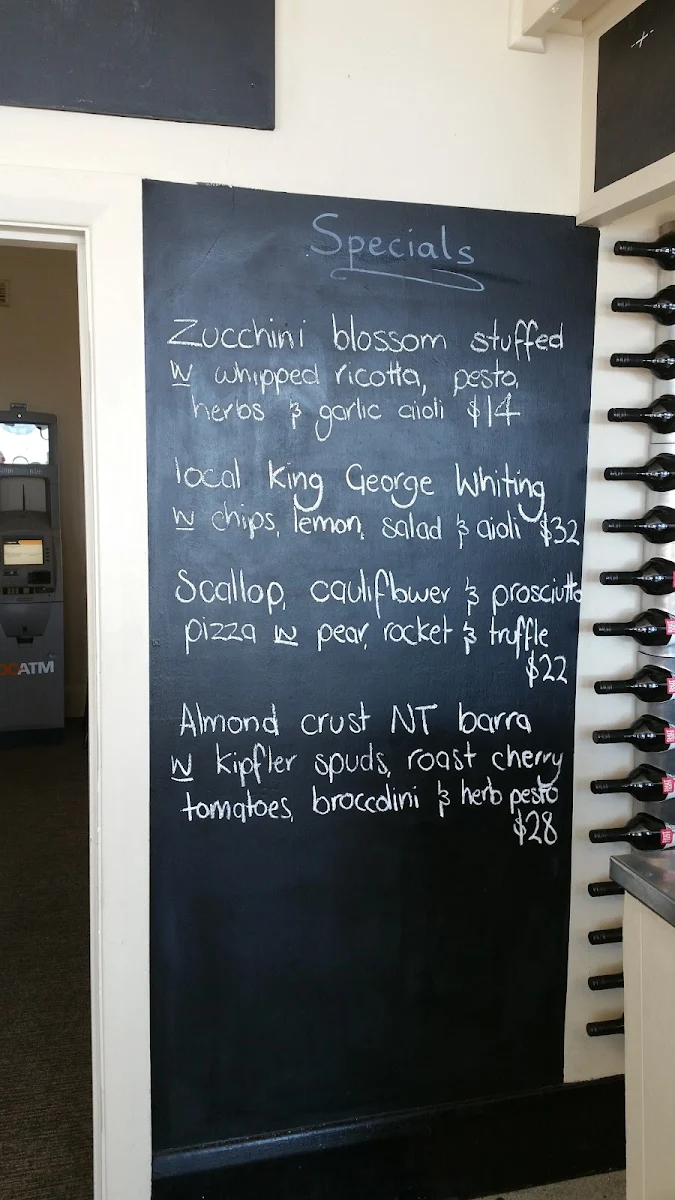 Specials
Zucchini blossom stuffed
w whipped ricotta, pesto,
herbs & garlic aioli $14
local King George Whiting
w chips, lemon, salad & aioli $32
Scallop, cauliflower & prosciutto
pizza w pear, rocket & truffle
$22
Almond crust NT barra
w kipfler spuds, roast cherry
tomatoes, broccolini & herb pesto
$28
ATM